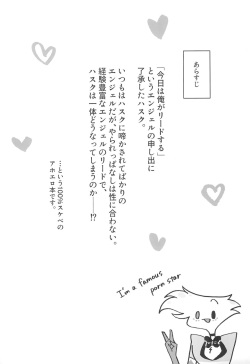 あらすじ
「今日は俺がリードする」
というエンジェルの申し出に
了承したハスク。
いつもはハスクに啼かされてばかりの
エンジェルだが、やられっぱなしは性に合わない。
経験豊富なエンジェルのリードで、
ハスクは一体どうなってしまうのか――!?
…という100%スケベの
アホエロ本です。
I'm a famous
porn star